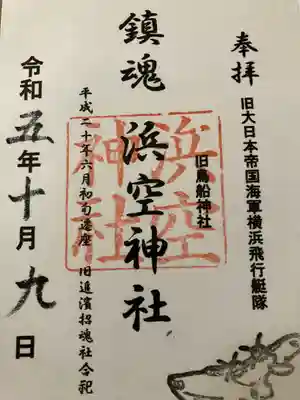 奉拝
旧大日本帝国海軍横浜飛行艇隊
旧鳥船神社
鎮魂
浜空神社
浜空神社
平成二十年六月初旬遷座 旧追濱招魂社合祀
令和五年十月九日